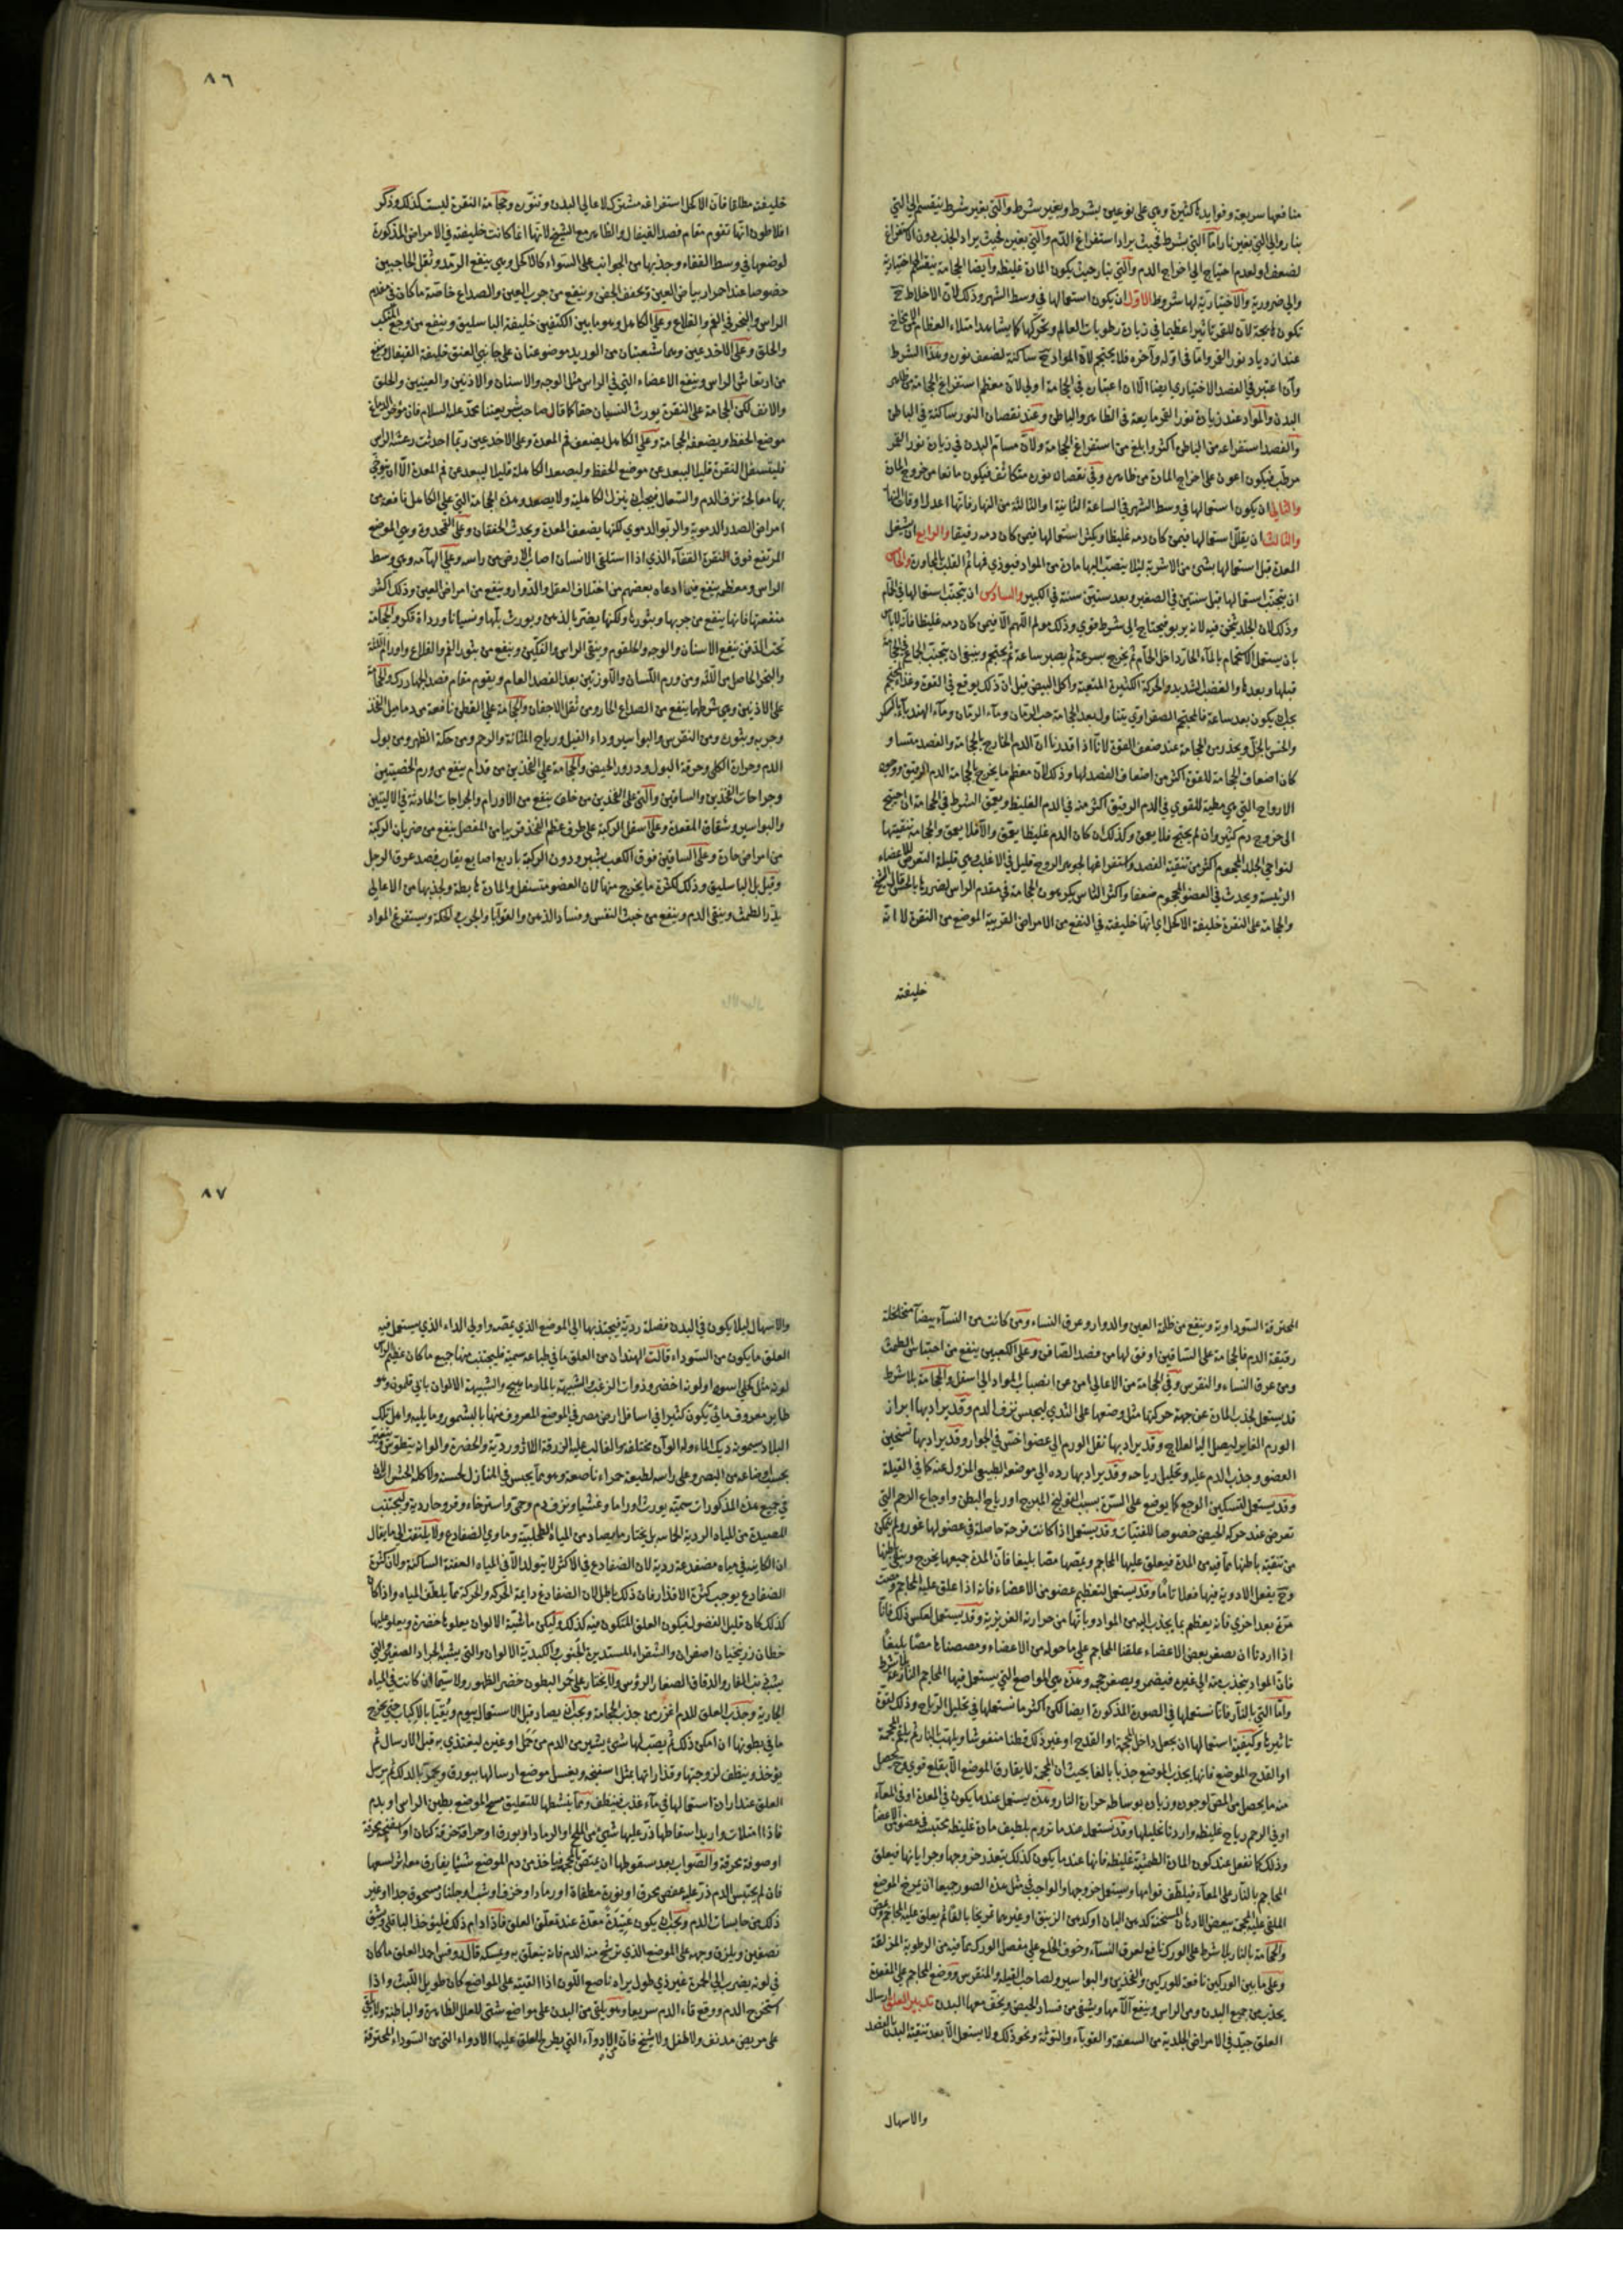 منافعها سريعة وفوايدها كثيرة وهي على نوعين بشرط وبغير شرط والتي بغير شرط ينقسم الى التي
بنار والى التي بغير نار اما التي بشرط فحيث يراد استفراغ الدم والتي بغيره فحيث يراد الجذب دون الاستفراغ
لضعف او لعدم احتياج الى اخراج الدم والتي بنار حيث يكون المادة غليظة وايضا الحجامة ينقسم الى اختيارية
والى ضرورية والاختيارية لها شروط الاول ان يكون استعمالها في وسط الشهر وذلك لان الاخلاط ح
تكون هايجة لان للقمر تاثيرا عظيما في زيادة رطوبات العالم وتحركها كما يشاهد امتلاء العظام من المخاخ
عند ازدياد نور القمر واما في اوله وآخره فلا يحتجم لان المواد ح ساكنة لضعف نوره وهذا الشرط
وان اعتبر في الفصد الاختياري ايضا الا ان اعتباره في الحجامة اولى لان معظم استفراغ الحجامة من ظاهر
البدن والمواد عند زيادة نور القمر مايعة في الظاهر والباطن وعند نقصان النور ساكنة في الباطن
والفصد استفراغه من الباطن اكثر وابلغ من استفراغ الحجامة ولان مسام البدن في زيادة نور القمر
مرطب فيكون اعون على اخراج المادة من ظاهره وفي نقصان نوره متكاثف فيكون مانعا من خروج المادة
والثاني ان يكون استعمالها في وسط الشهر في الساعة الثانية او الثالثة من النهار فانها اعدل اوقات النهار
والثالث ان يقلل استعمالها فيمن كان دمه غليظا ويكثر استعمالها فيمن كان دمه رقيقا والرابع ان يشغل
المعدة قبل استعمالها بشئ من الاشربة لئلا ينصب اليها مادة من المواد فيوذي فمها ثم القلب للمجاورة والخامس
ان يتجنب استعمالها قبل سنتين في الصغير وبعد ستين سنة في الكبير والسادس ان يتجنب استعمالها في الحمام
وذلك لان الجلد يثخن فيه لانه يربو فيحتاج الى شرط قوي وذلك مولم اللهم الا فيمن كان دمه غليظا فانه لا باس
بان يستعمل الاستحمام بالماء الحار داخل الحمام ثم يخرج بسرعة ثم يصبر ساعة ثم يحتجم وينبغي ان يتجنب الجماع
قبلها وبعدها والغضب الشديد والحركة الكثيرة المتعبة واكل البيض قبل ان ذلك يوقع في القوة وغذاء المحتجم
يجب يكون بعد ساعة فالمحتجم الصفراوي يتناول بعد الحجامة حب الرمان وماء الرمان وماء الهندبا بالسكر
والخس بالخل ويحذر من الحجامة عند ضعف القوة لانا اذا قدرنا ان الدم الخارج بالحجامة والفصد متساو
كان اضعاف الحجامة للقوة اكثر من اضعاف الفصد لها وذلك لان معظم ما يخرج بالحجامة الدم الرقيق ووجود
الارواح التي هي مطية للقوي في الدم الرقيق اكثر منه في الدم الغليظ ويعمق الشرط في الحجامة ان احتيج
الى خروج دم كثير وان لم يحتج فلا يعمق وكذلك ان كان الدم غليظا يعمق والا فلا يعمق والحجامة تنقيتها
لنواحي الجلد المحجوم اكثر من تنقية الفصد واستفراغها لجوهر الروح قليل في الاغلب وهي قليلة التعرض للاعضاء
الرئيسة ويحدث في العضو المحجوم ضعفا واكثر الناس يكرهون الحجامة في مقدم الراس لضررها بالحس قال الشيخ
والحجامة على النقرة خليفة الاكحل اي انها خليفته في النفع من الامراض القريبة الموضع من النقرة لا انه
خليفته
٨٦
خليفته مطلقا فان الاكحل استفراغه مشترك لاعالي البدن وتنوره وحجامة النقرة ليست كذلك وذكر
افلاطون انها تقوم مقام فصد القيفال والظاهر مع الشيخ لانها انما كانت خليفته في الامراض المذكورة
لوضعها في وسط القفاء وجذبها من الجوانب على السواء كالاكحل وهي ينفع الرمد وثقل الحاجبين
خصوصا عند احمرار بياض العين ويخفف الجفن وينفع من جرب العين والصداع خاصة ما كان في مقدم
الراس والبخر في الفم والقلاع وعلى الكاهل وهو ما بين الكتفين خليفة الباسليق وينفع من وجع المنكب
والحلق وعلى الاخدعين وهما شعبتان من الوريد موضوعتان على جانبي العنق خليفة القيفال وينفع
من ارتعاش الراس وينفع الاعضاء التي في الراس مثل الوجه والاسنان والاذنين والعينين والحلق
والانف لكن الحجامة على النقرة يورث النسيان حقا كما قال صاحب شريعتنا محمد عليه السلام فان موخر الدماغ
موضع الحفظ ويضعفه الحجامة وعلى الكاهل يضعف فم المعدة وعلى الاخدعين ربما احدثت رعشة الراس
فليتسفل النقرة قليلا ليبعد عن موضع الحفظ وليصعد الكاهلة قليلا ليبعد عن فم المعدة الا ان يتوخى
بها معالجة نزف الدم والسعال فيجب ان ينزل الكاهلية ولا يصعد وهذه الحجامة التي على الكاهل نافعة من
امراض الصدر الدموية والربو الدموي لكنها يضعف المعدة ويحدث الخفقان وعلى القمحدوة وهي الموضع
المرتفع فوق النقرة القفاء الذي اذا استلقى الانسان اصاب الارض من راسه وعلى الهامة وهي وسط
الراس ومعظمه ينفع فيما ادعاه بعضهم من اختلاف العقل والدوار وينفع من امراض العين وذلك اكثر
منفعتها فانها ينفع من جربها وبثورها ولكنها يضر بالذهن ويورث بلها ونسيانا ورداءة فكر والحجامة
تحت الذقن ينفع الاسنان والوجه والحلقوم وينقي الراس والفكين وينفع من بثور الفم والقلاع واورام اللثة
والبخر الحاصل من اللثة ومن ورم اللسان واللوزتين بعد الفصد العام ويقوم مقام فصد الجهارك والحجامة
على الاذنين وهي شرطها ينفع من الصداع الحار ومن ثقل الاجفان والحجامة على القطن نافعة من دماميل الفخذ
وجربه وبثوره ومن النقرس والبواسير وداء الفيل ورياح المثانة والرحم ومن حكة الظهر ومن بول
الدم وحرارة الكلى وحرقة البول ودرور الحيض والحجامة على الفخذين من قدام ينفع من ورم الخصيتين
وجراحات الفخذين والساقين والتي على الفخذين من خلف ينفع من الاورام والجراحات الحادثة في الاليتين
والبواسير وشقاق المقعدة وعلى اسفل الركبة على طرف عظم الفخذ قريبا من المفصل ينفع من ضربان الركبة
من امراض حارة وعلى الساقين فوق الكعب بشبر ودون الركبة باربع اصابع يقارب فصد عرق الرجل
وقيل بل الباسليق وذلك لكثرة ما يخرج منها لان العضو متسفل والمادة هابطة ولجذبها من الاعالي
يدر الطمث وينقي الدم وينفع من خبث النفس وفساد الذهن والقوبا والجرب والحكة ويستفرغ المواد
المحترقة السوداوية وينفع من ظلمة العين والدوار وعرق النساء ومن كانت من النساء بيضاء متخلخلة
رقيقة الدم فالحجامة على الساقين اوفق لها من فصد الصافن وعلى الكعبين ينفع من احتباس الطمث
ومن عرق النساء والنقرس وفي الحجامة من الاعالي امن عن انصباب المواد الى اسفل والحجامة بلا شرط
قد يستعمل لجذب المادة عن جهة حركتها مثل وضعها على الثدي ليحبس نزف الدم وقد يراد بها ابراز
الورم الغاير ليصل اليه العلاج وقد يراد بها نقل الورم الى عضو اخس في الجوار وقد يراد بها تسخين
العضو وجذب الدم عليه وتحليل رياحه وقد يراد بها رده الى موضعه الطبيعي المزول عنه كما في القيلة
وقد يستعمل لتسكين الوجع كما يوضع على السرة بسبب القولنج المبرح او رياح البطن واوجاع الرحم التي
تعرض عند حركة الحيض خصوصا للفتيات وقد يستعمل اذا كانت قرحة حاصلة في عضو لها غور ولم يتمكن
من تنقية باطنها مما فيه من المدة فيعلق عليها المحاجم ويمصها مصا بليغا فان المدة جميعها يخرج وينقى باطنها
وح يفعل الادوية فيها فعلا تاما وقد يستعمل لتعظيم عضو من الاعضاء فانه اذا علق عليه المحاجم ومصت
مرة بعد اخرى فانه يعظم بما يجذب اليه من المواد وبانها من حرارته الغريزية وقد يستعمل لعكس ذلك فانا
اذا اردنا ان يصغر بعض الاعضاء علقنا المحاجم على ما حوله من الاعضاء ومصصناها مصا بليغا
فان المواد ينجذب منه الى غيره فيضمر ويصغر حجمه وهذه هي المواضع التي يستعمل فيها المحاجم الفارغة بلا شرط
واما التي بالنار فانا نستعملها في الصورة المذكورة ايضا لكن اكثر ما نستعملها في تحليل الرياح وذلك لقوة
تاثيرها وكيفية استعمالها ان يجعل داخل المحجمة او القدح او غير ذلك قطنا منفوشا ويلهب النار ثم يلقم المحجمة
او القدح الموضع فانها يجذب الموضع جذبا بالغا بحيث ان المحجمة لا يفارق الموضع الا بقلع قوي وح يحصل
منه ما يحصل من المص او اجود وزيادة بوساطة حرارة النار وهذه يستعمل عندما يكون في المعدة او في المعاء
او في الرحم رياح غليظة واردنا تحليلها وقد يستعمل عندما نروم تلطيف مادة غليظة محتبسة في عضو من الاعضاء
وذلك كما نفعل عند كون المادة الطمثية غليظة فانها عندما يكون كذلك يتعذر خروجها وجريانها فيعلق
المحاجم بالنار على المعاء فيلطف قوامها ويستعمل خروجها والواجب في مثل هذه الصور جميعا ان يمرخ الموضع
الملقى عليه المحجمة ببعض الادهان المسخنة كدهن البان او دهن الزنبق او غيرهما تمريخا بالغا ثم يعلق عليه المحاجم
والحجامة بالنار بلا شرط على الورك نافع لعرق النساء وخوف الخلع على مفصل الورك مما فيه من الرطوبة المزلقة
وعلى ما بين الوركين نافعة للوركين والفخذين والبواسير ولصاحب القيلة والمنقرس ووضع المحاجم على المقعدة
يجذب من جميع البدن ومن الراس وينفع آلامها ويشفي من فساد الحيض ويخف معها البدن تدبير العلق ارسال
العلق جيد في الامراض الجلدية من السعفة والقوباء والتوثة ونحو ذلك ولا يستعمل الا بعد تنقية البدن بالفصد
والاسهال
٨٧
والاسهال لئلا يكون في البدن فضلة ردية فيجتذبها الى الموضع الذي يمصه واولى الداء الذي يستعمل فيه
العلق ما يكون من السوداء قالت الهند ان من العلق ما في طباعه سمية فليجتنب منها جميع ما كان عظيم الراس
لونه مثل كحلي اسود او لونه اخضر وذوات الزغب والشبيهة بالمارماهيج والشبيهة الالوان بابي قلمون وهو
طاير معروف مائي يكون كثيرا في اسافل ارض مصر في الموضع المعروف منها بالبشمور وما يليه واهل تلك
البلاد يسمونه ديك الماء وله الوان مختلفة والغالب عليه الزرقة اللازوردية والحضرة والوانه يتطوس ويتغير
بحسب اوضاعه من البصر وعلى راسه لطيعة حمراء ناصعة وهو مما يحبس في المنازل لحسنه ولاكله الحشرات لان
في جميع هذه المذكورات سمية يورث اوراما وغشيا ونزف دم وحمى واسترخاء وقروحا ردية وليجتنب
المصيدة من المياه الردية الحماية بل يختار ما يصاد من المياه الطحلبية وماوي الضفادع ولا يلتفت الى ما يقال
ان الكاينة في مياه مضفدعة ردية لان الضفادع في الاكثر لا يتولد الا في المياه العفنة الساكنة ولان كثرة
الضفادع يوجب كثرة الاقذار فان ذلك باطل لان الضفادع دايمة الحركة والحركة مما يلطف المياه واذا كان
كذلك كان قليل الفضول فيكون العلق المتكون فيه كذلك وليكن ماشية الالوان يعلوها خضرة ويعلو عليها
خطان زرنيخيان اصفران والشقراء المستديرة الجنوب والكبدية الالوان والتي يشبه الجراد الصغير والتي
يشبه ذنب الفار والدقاق الصغار الرؤس ولا يختار على حمر البطون خضر الظهور ولا سيما ان كانت في المياه
الجارية وجذب العلق للدم اغزر من جذب الحجامة ويجب ان يصاد قبل الاستعمال بيوم ويقيا بالاكباب حتى يخرج
ما في بطونها ان امكن ذلك ثم يصب لها شئ يسير من الدم من حمل او غيره ليغتذي به قبل الارسال ثم
يؤخذ وينظف لزوجتها وقذارتها بمثل اسفنجة ويغسل موضع ارسالها ببورق ويحمر بالدلك ثم يرسل
العلق عند ارادة استعمالها في ماء عذب فينظف ومما ينشطها للتعليق مسح الموضع بطين الراس او بدم
فاذا امتلات واريد اسقاطها ذر عليها شئ من الملح او الرماد او بورق او حراقة خرقة كتان او اسفنجة محرقة
او صوفة محرقة والصواب بعد سقوطها ان يمتص بالمحجمة فياخذ من دم الموضع شيئا يفارق معه اثر لسعها
فان لم يحتبس الدم ذر عليه عفص محرق او نورة مطفاة او رمادا وخزف او شب او جلنار مسحوق جدا او غير
ذلك من حابسات الدم ويجب ان يكون عتيدة معدة عند تعلق العلق فاذا دام ذلك فليؤخذ الباقلى ويشق
نصفين ويلزق وجهه على الموضع الذي ترشح منه الدم فانه يتعلق به ويمسكه قال روفس اجد العلق ما كان
في لونه يضرب الى الحمرة غير ذي طول يراه ناصع اللون اذا القيته على المواضع كان طويل اللبث واذا
استخرج الدم ووقع قاء الدم سريعا وهو يلقى من البدن على مواضع شتى للعلل الظاهرة والباطنة ولا يلقى
على مريض مدنف ولا طفل ولا شيخ فان الادواء التي يطرح العلق عليها الادواء التي من السوداء المحترقة